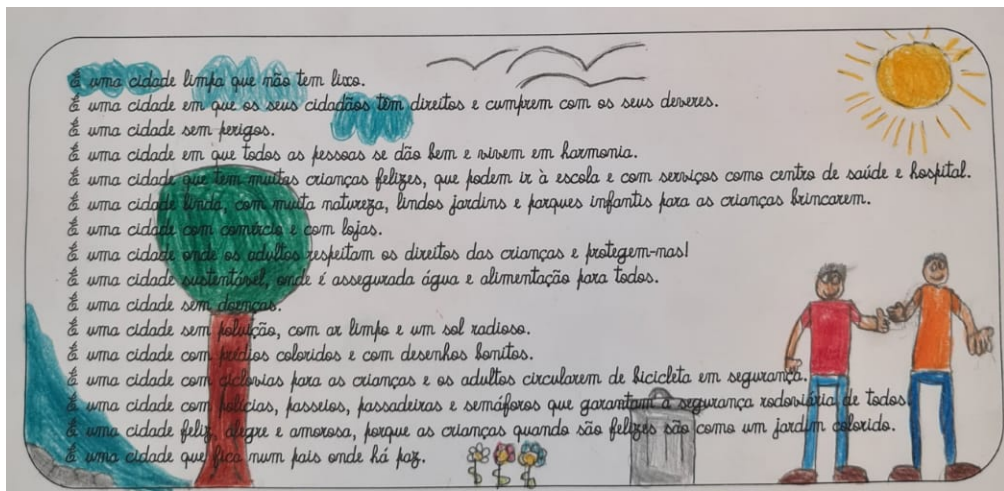 É uma cidade limpa que não tem lixo.
É uma cidade em que os seus cidadãos têm direitos e cumprem com os seus deveres.
É uma cidade sem perigos.
É uma cidade em que todos as pessoas se dão bem e vivem em harmonia.
É uma cidade que tem muitas crianças felizes, que podem ir à escola e com serviços como centro de saúde e hospital.
É uma cidade linda, com muita natureza, lindos jardins e parques infantis para as crianças brincarem.
É uma cidade com comércio e com lojas.
É uma cidade onde os adultos respeitam os direitos das crianças e protegem-nas!
É uma cidade sustentável, onde é assegurada água e alimentação para todos.
É uma cidade sem doenças.
É uma cidade sem poluição, com ar limpo e um sol radioso.
É uma cidade com prédios coloridos e com desenhos bonitos.
É uma cidade com ciclovias para as crianças e os adultos circularem de bicicleta em segurança.
É uma cidade com polícias, passeios, passadeiras e semáforos que garantam a segurança rodoviária de todos.
É uma cidade feliz, alegre e amorosa, porque as crianças quando são felizes são como um jardim colorido.
É uma cidade que fica num país onde há paz.